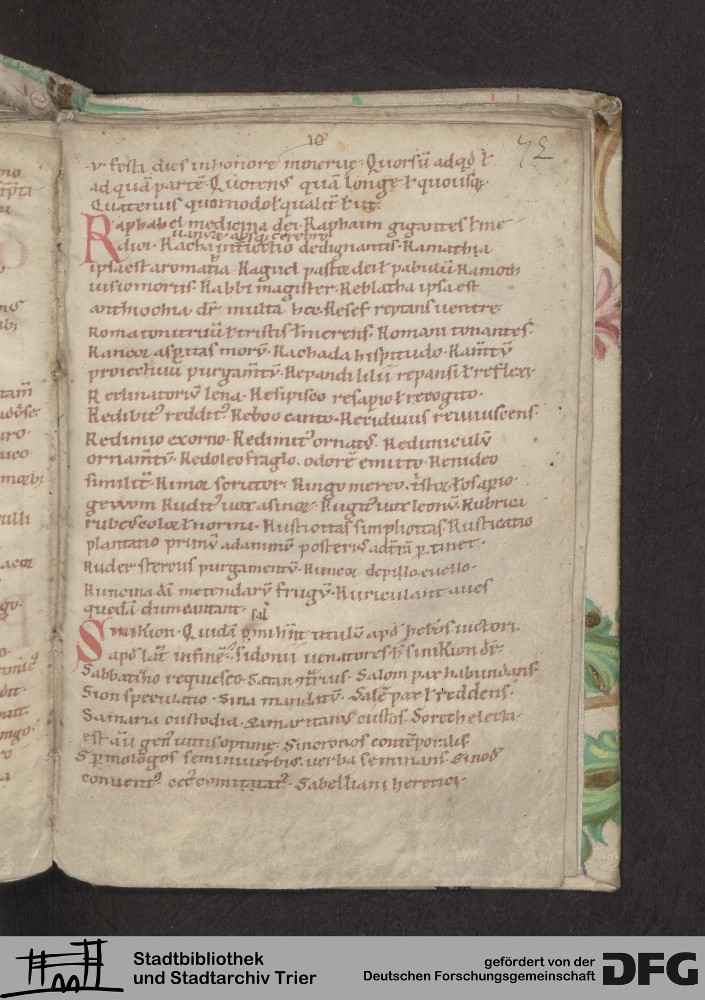 72
.v. festa dies in honore minerue. Quorsū ad qd ł
ad quā partē. Quotens quā longe ł quousq;
Quatenus quomodo ł qualit̄ ł ut.
Raphahel medicina dei. Raphaim gigantes ł me
uanitas absq; cerebro
dici. Racha intiectio dedignantis. Ramathia
ipsa est aromatia. Raguel pastor dei ł pabulū. Ramoth
uisio mortis. Rabbi magister. Reblatha ipsa est
anthiochia dr̄ multa hec. Resef reptans uentre.
Roma tonitruū ł tristis ł merens. Romani tonantes.
Rancor asperitas morū. Rachada hispitudo. Ram̄tū
proiectiuū purgam̄tū. Repandi lilii repansi ł reflexi.
Reclinatoriū lena. Resipisco resapio ł recogito.
Redibit᷒ reddit᷒. Reboo canto. Recidiuus reuiuiscens.
Redimio exorno. Redimit᷒ ornat᷒. Redimiculū
ornam̄tū. Redoleo fraglo. odorē emitto. Renideo
simil᷒. Rimor scrutor. Ringo mereo.
Rudit᷒ uox asinor. Rugit᷒ uox leonū. Rubrica
rubeus color ł norma. Rusticitas simplicitas. Rusticatio
plantatio primū ad animū posterius ad t̄rā p tinet.
Ruder stercus purgamentū. Runcor depilo euello.
Runcina metendarū frugū. Ruriculant aues
quedā dum cantant.
Sinikion. Quidā titulū apd
apd lat̄ in fine. Sidonii uenatores sinikion dr̄.
Sabbatiho requiesco. Satan Salom pax habundans.
Sion speculatio. Sina mandatū. Salē pax ł reddens.
Samaria custodia. Samaritan᷒ custos. Sorech electa.
est aū gen᷒ uitis optime. Sincronos contēporalis
Spermologos seminiuerbius. uerba seminans. Sinod᷒
conuent᷒ comitat᷒. Sabelliani heretici.
Stadtbibliothek
und Stadtarchiv Trier
gefördert von der
Deutschen Forschungsgemeinschaft
DFG